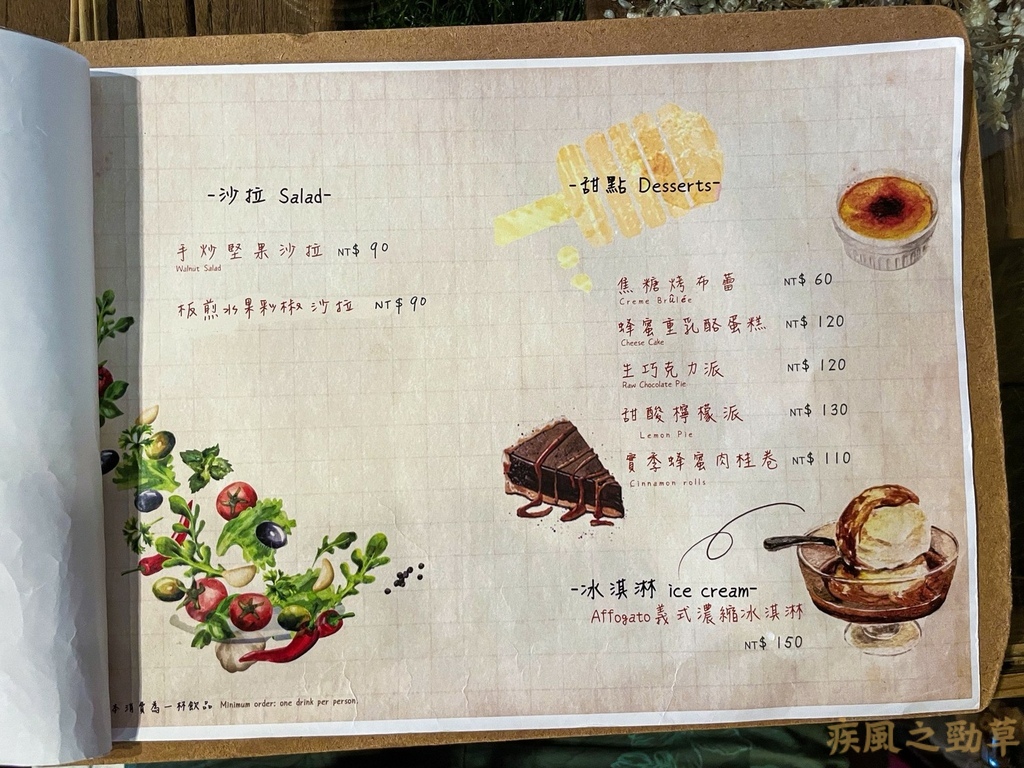 -沙拉 Salad-
手炒堅果沙拉 NT$ 90
Walnut Salad
板煎水果彩椒沙拉 NT$ 90
-甜點 Desserts-
焦糖烤布蕾 NT$ 60
Creme Brûlée
蜂蜜重乳酪蛋糕 NT$ 120
Cheese Cake
生巧克力派 NT$ 120
Raw Chocolate Pie
甜酸檸檬派 NT$ 130
Lemon Pie
蜂蜜肉桂卷 NT$ 110
Cinnamon rolls
-冰淇淋 ice cream-
Affogato義式濃縮冰淇淋
NT$ 150
本消費為一杯飲品 Minimum order: one drink per person.
疾風之勁草